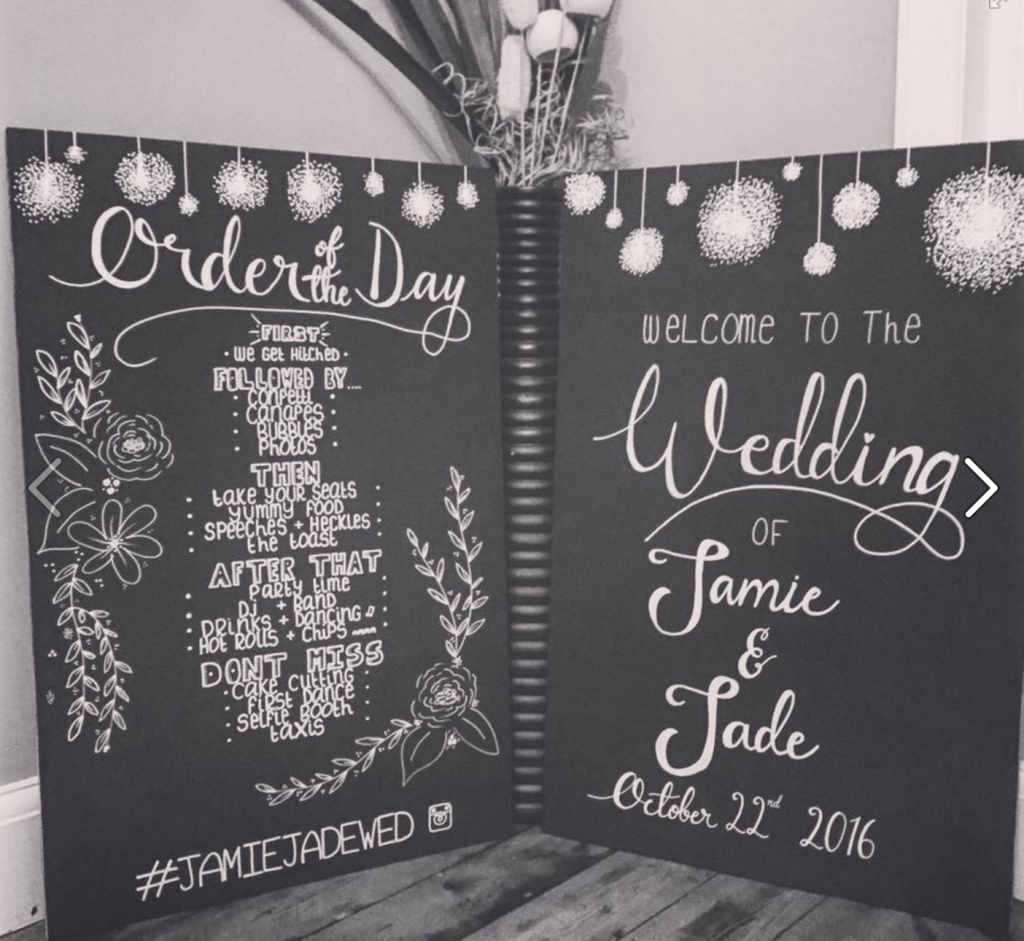 Order of the Day
FIRST
• We Get HitcHed •
FOLLOWED BY....
• confetti •
• canapes •
• BUBBLES •
• PHotos •
THEN
• take your seats •
• yummy food •
• speeches + Heckles •
• the toast •
AFTER THAT
• party time •
• DJ + BAND •
• DRINKS + DANCING ♫ •
• HOT ROLLS + CHIPS •
DON'T MISS
• cake cutting •
• first dance •
• selfie booth •
• taxis •
#JAMIEJADEWED
WELCOME TO The
Wedding
OF
Jamie
&
Jade
October 22nd 2016